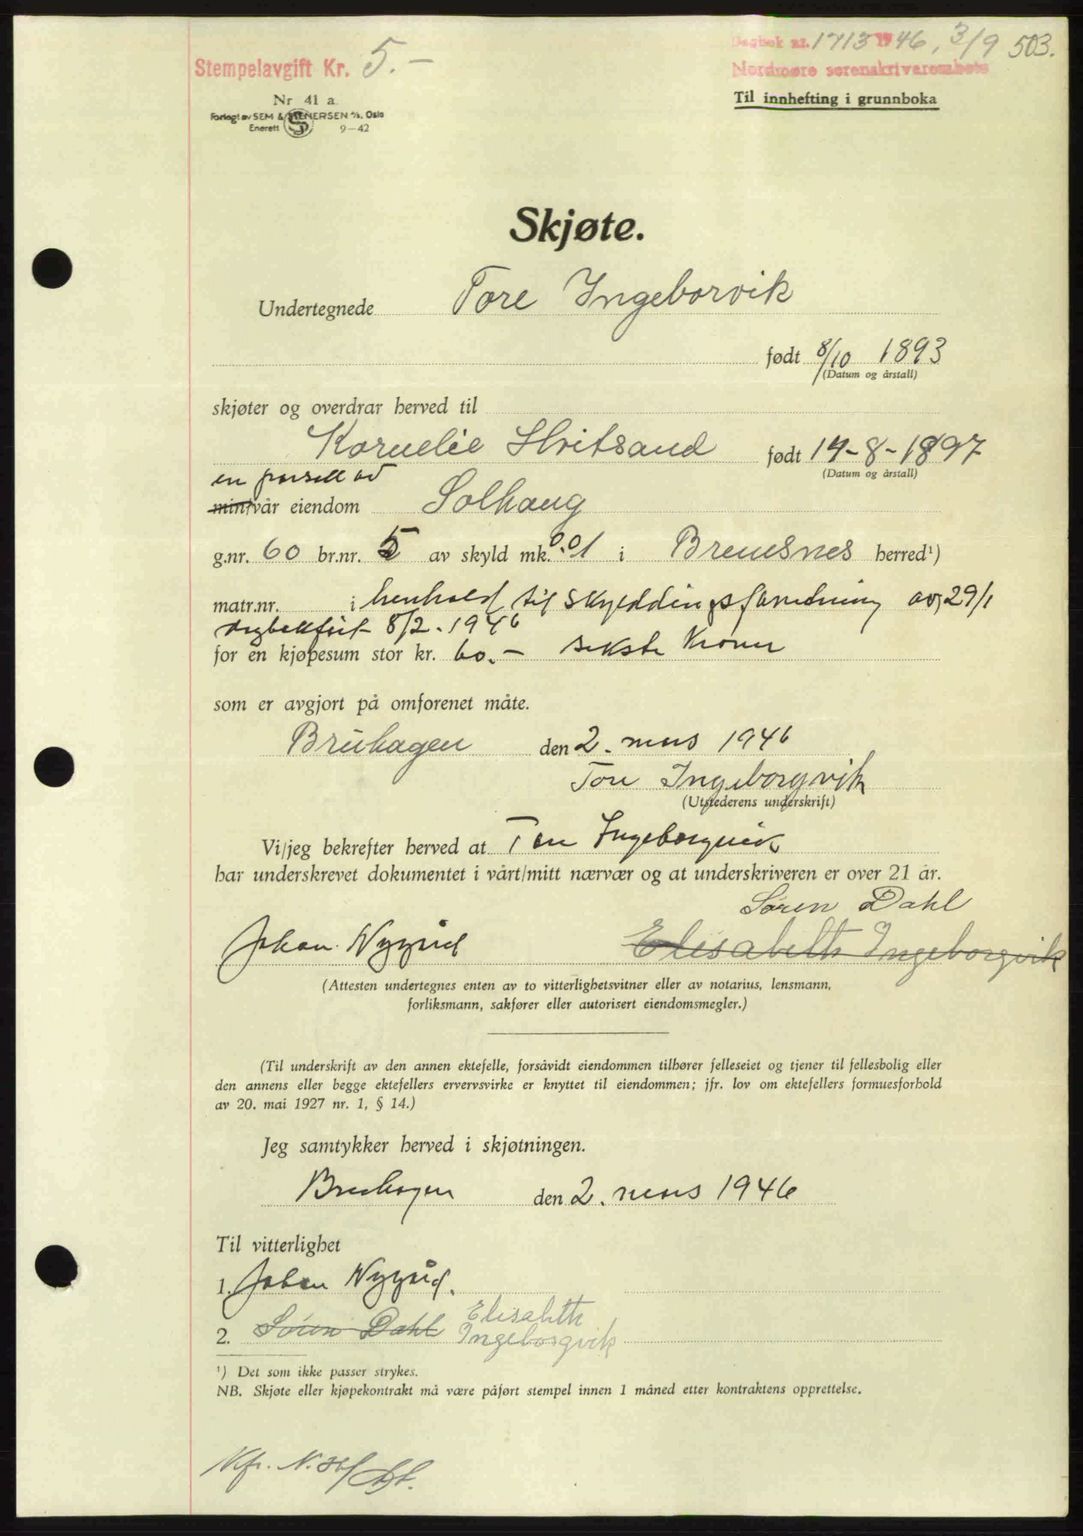 Dagbok nr. 1713 1946, 3/9 503.
Stempelavgift Kr. 5.-
Nordmøre sorenskriverembete
Nr 41 a.
Til innhefting i grunnboka
Forlagt av SEM & STENERSEN A/S, Oslo
Enerett 9-42
Skjøte.
Undertegnede Tore Ingeborvik
født 8/10 1893
(Datum og årstall)
skjøter og overdrar herved til
Kornelie Hvitsand født 14-8-1897
(Datum og årstall)
en parsell av
min/vår eiendom Solhaug
g.nr. 60 br.nr. 5 av skyld mk. 0.01 i Bremsnes herred¹)
matr.nr. i henhold til skylddelingsforretning av 29/1
dagbokført 8/2. 1946
for en kjøpesum stor kr. 60.- seksti kroner
som er avgjort på omforenet måte.
Bruhagen den 2. mars 1946
Tore Ingeborgvik
(Utstederens underskrift)
Vi/jeg bekrefter herved at Tore Ingeborgvik
har underskrevet dokumentet i vårt/mitt nærvær og at underskriveren er over 21 år.
Søren Dahl
Johan Nygård Elisabeth Ingeborgvik
(Attesten undertegnes enten av to vitterlighetsvitner eller av notarius, lensmann,
forliksmann, sakfører eller autorisert eiendomsmegler.)
(Til underskrift av den annen ektefelle, forsåvidt eiendommen tilhører felleseiet og tjener til fellesbolig eller
den annens eller begge ektefellers ervervsvirke er knyttet til eiendommen; jfr. lov om ektefellers formuesforhold
av 20. mai 1927 nr. 1, § 14.)
Jeg samtykker herved i skjøtningen.
Bruhagen den 2. mars 1946
Til vitterlighet
1. Johan Nygård.
2. Søren Dahl Elisabeth
Ingeborgvik
¹) Det som ikke passer strykes.
NB. Skjøte eller kjøpekontrakt må være påført stempel innen 1 måned etter kontraktens opprettelse.